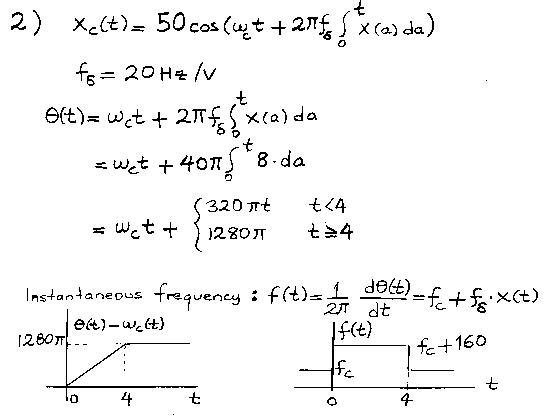 2) x_c(t) = 50 cos(ω_c t + 2πf_δ ∫_0^t x(a) da)
f_δ = 20 Hz /V
θ(t) = ω_c t + 2πf_δ ∫_0^t x(a) da
= ω_c t + 40π ∫_0^t 8·da
= ω_c t + { 320πt t<4
1280π t≥4
Instantaneous frequency : f(t) = 1/2π dθ(t)/dt = f_c + f_δ·x(t)
θ(t) - ω_c(t) f(t)
1280π f_c f_c+160
0 4 t 0 4 t